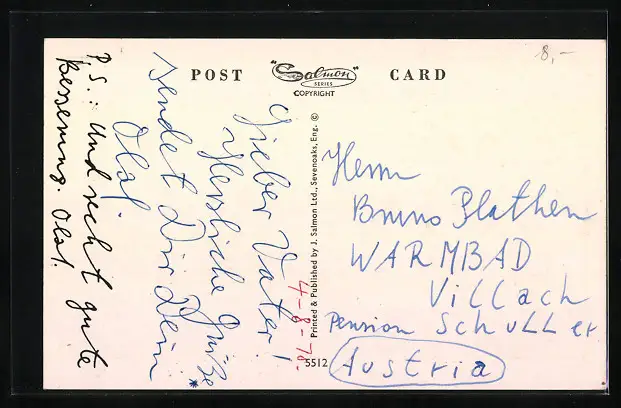 8,-
POST CARD
"Salmon"
SERIES
COPYRIGHT
Lieber Vater!
Herzliche Grüße
sendet Dir Dein
Olaf
P.S.: Und recht gute
Besserung. Olaf.
4-8-78.
Printed & Published by J. Salmon Ltd., Sevenoaks, Eng. ©
5512
Herrn
Bruno Plathen
WARMBAD
Villach
Pension Schuller
Austria